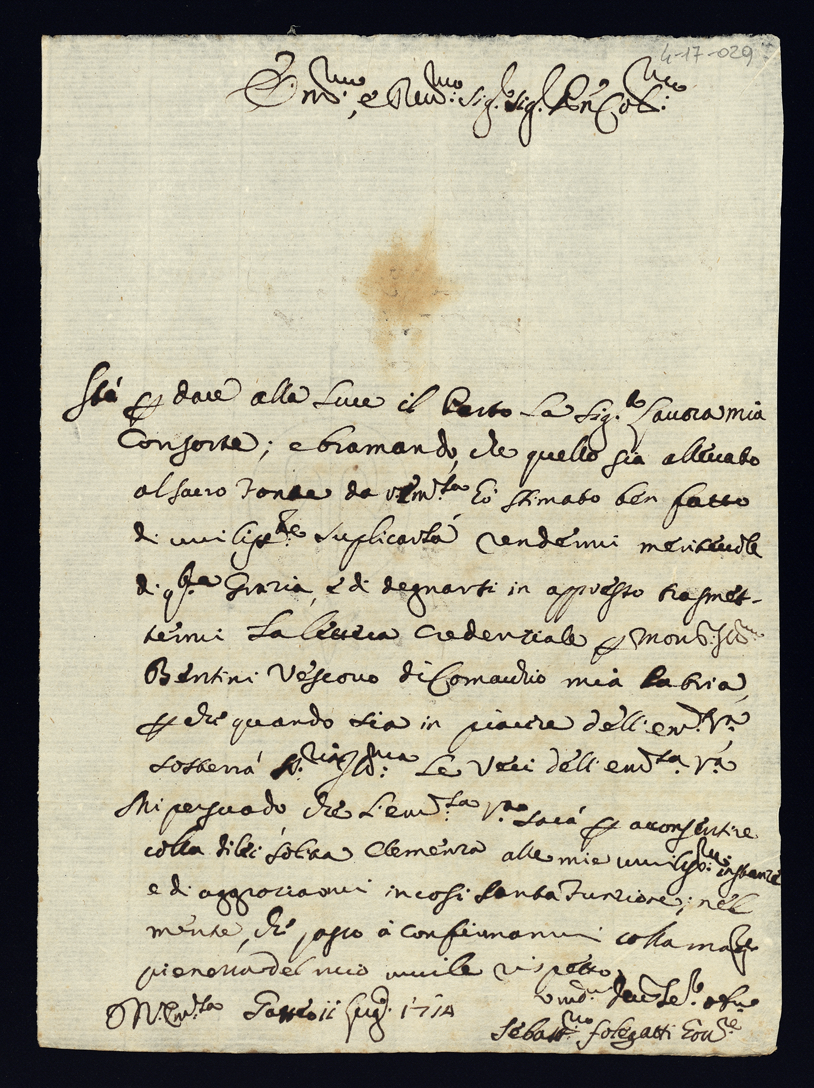 4-17-029
Em.mo, e Rev.mo Sig.r Sig.r Pn Col.mo
Stà p dare alla Luce il Parto La Sig.ra Laura mia
Consorte; e bramando, che quello sia allevato
al sacro Fonte da V. Em.za hò stimato ben fatto
di umiliss.te supplicarla rendermi meritevole
di q.sta Grazia, e di degnarsi in appresso trasmet-
termi La lettera credenziale p Mons.r Ill.mo
Bentini Vescovo di Comacchio mia Patria,
p che quando sia in piacere dell'em.za V.ra
sosterrà S.ria Ill.ma Le Veci dell'em.za V.ra
Mi persuado che L'em.za V.ra sarà p acconsentire
colla di lei solita Clemenza alle mie umiliss.me instanze
e di aggraziarmi in così santa Funzione; nel
mentre, che passo à confirmarmi colla mag.r
pienezza del mio umile rispetto
D. V. Em.za Gatteo 11 Lug.o 1714
Um.o Dev.mo Se.re
Sebast.no Folegatti Gov.re